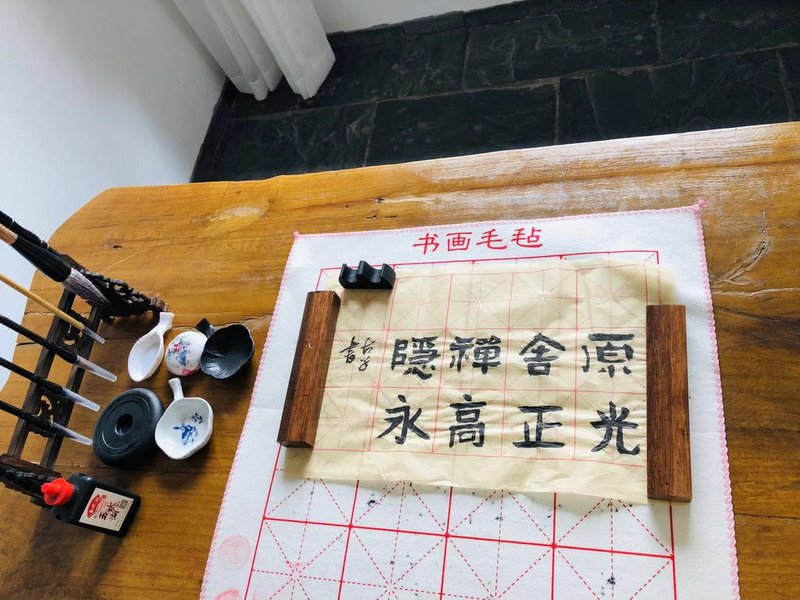 书画毛毡
原舍禪隱
光正高永